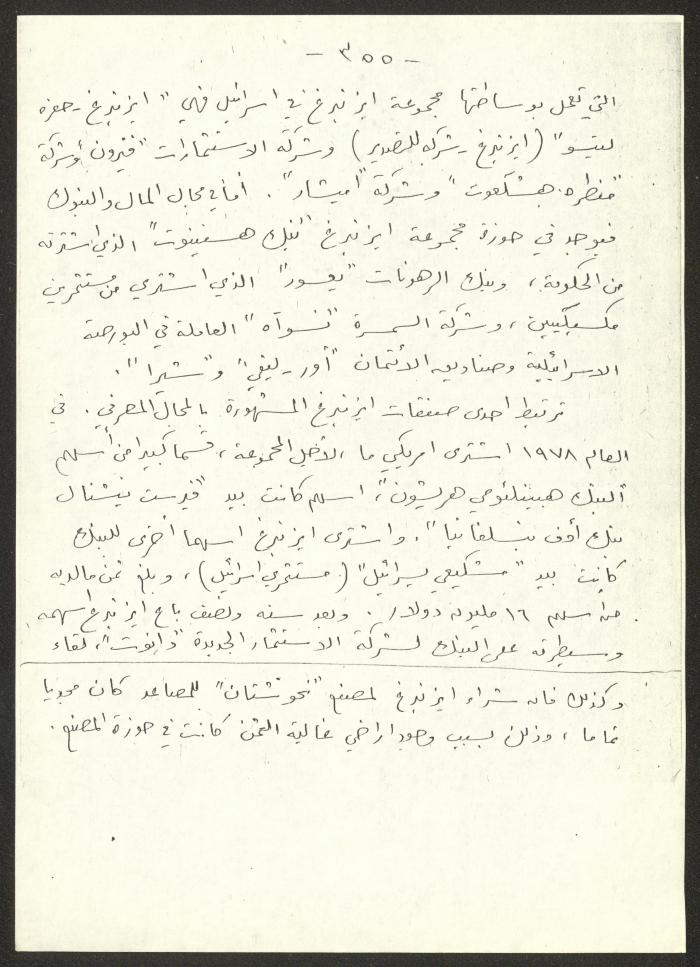 - ٣٥٥ -
التي تعمل بوساطتها مجموعة ايزنبرغ في اسرائيل فهي " ايزنبرغ - حفره
ليتسو" (ايزنبرغ - شركه للتصدير) وشركة الاستثمارات "فيرون" وشركة
"مفطره هشكعوت" وشركة "اميشار". أما في مجال المال والبنوك
فيوجد في حوزة مجموعة ايزنبرغ "بنك هسفينوت" الذي اشترته
من الحكومة، وبنك الرهونات "يعسور" الذي اشتري من مستثمرين
مكسيكيين، وشركة السمسرة "نسوآه" العاملة في البورصة
الاسرائيلية وصناديق الائتمان "أور - ليفي" و"شيرا".
ترتبط احدى صفقات ايزنبرغ المشهورة بالمجال المصرفي. في
العام ١٩٧٨ اشترى امريكي ما، لاجل المجموعة، قسما كبيرا من أسهم
"البنك هبينلئومي هريشون"، اسهم كانت بيد "فيرست نيشنال
بنك أوف بنسلفانيا". واشترى ايزنبرغ اسهما أخرى للبنك
كانت بيد "مشكيعي يسرائيل" (مستثمري اسرائيل)، وبلغ ثمن مالديه
من اسهم ١٦ مليون دولار. وبعد سنه ونصف باع ايزنبرغ اسهمه
وسيطرته على البنك لشركة الاستثمار الجديدة "دانوت"، لقاء
وكذلك فان شراء ايزنبرغ لمصنع "نحوشتان" للمصاعد كان مجديا
تماما، وذلك بسبب وجود اراضي غالية الثمن كانت في حوزة المصنع.